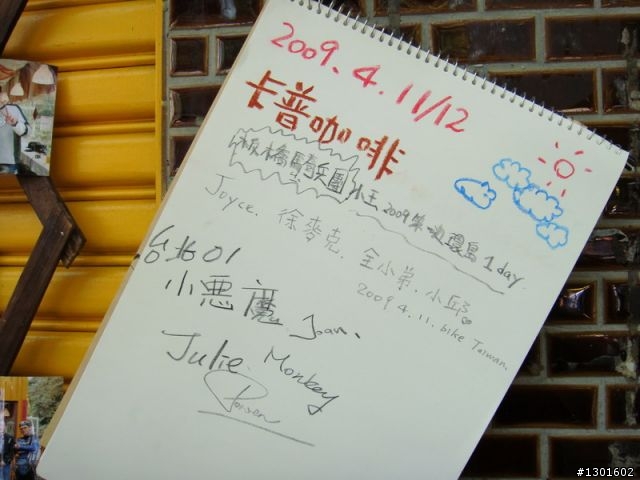 2009.4.11/12
卡普咖啡
板橋騎兵團 小王 2009第一次環島 1 day.
Joyce. 徐麥克. 金小弟. 小邱
2009.4.11. bike Taiwan.
台北01
小悪魔 Joan.
Julie. Monkey
#1301602